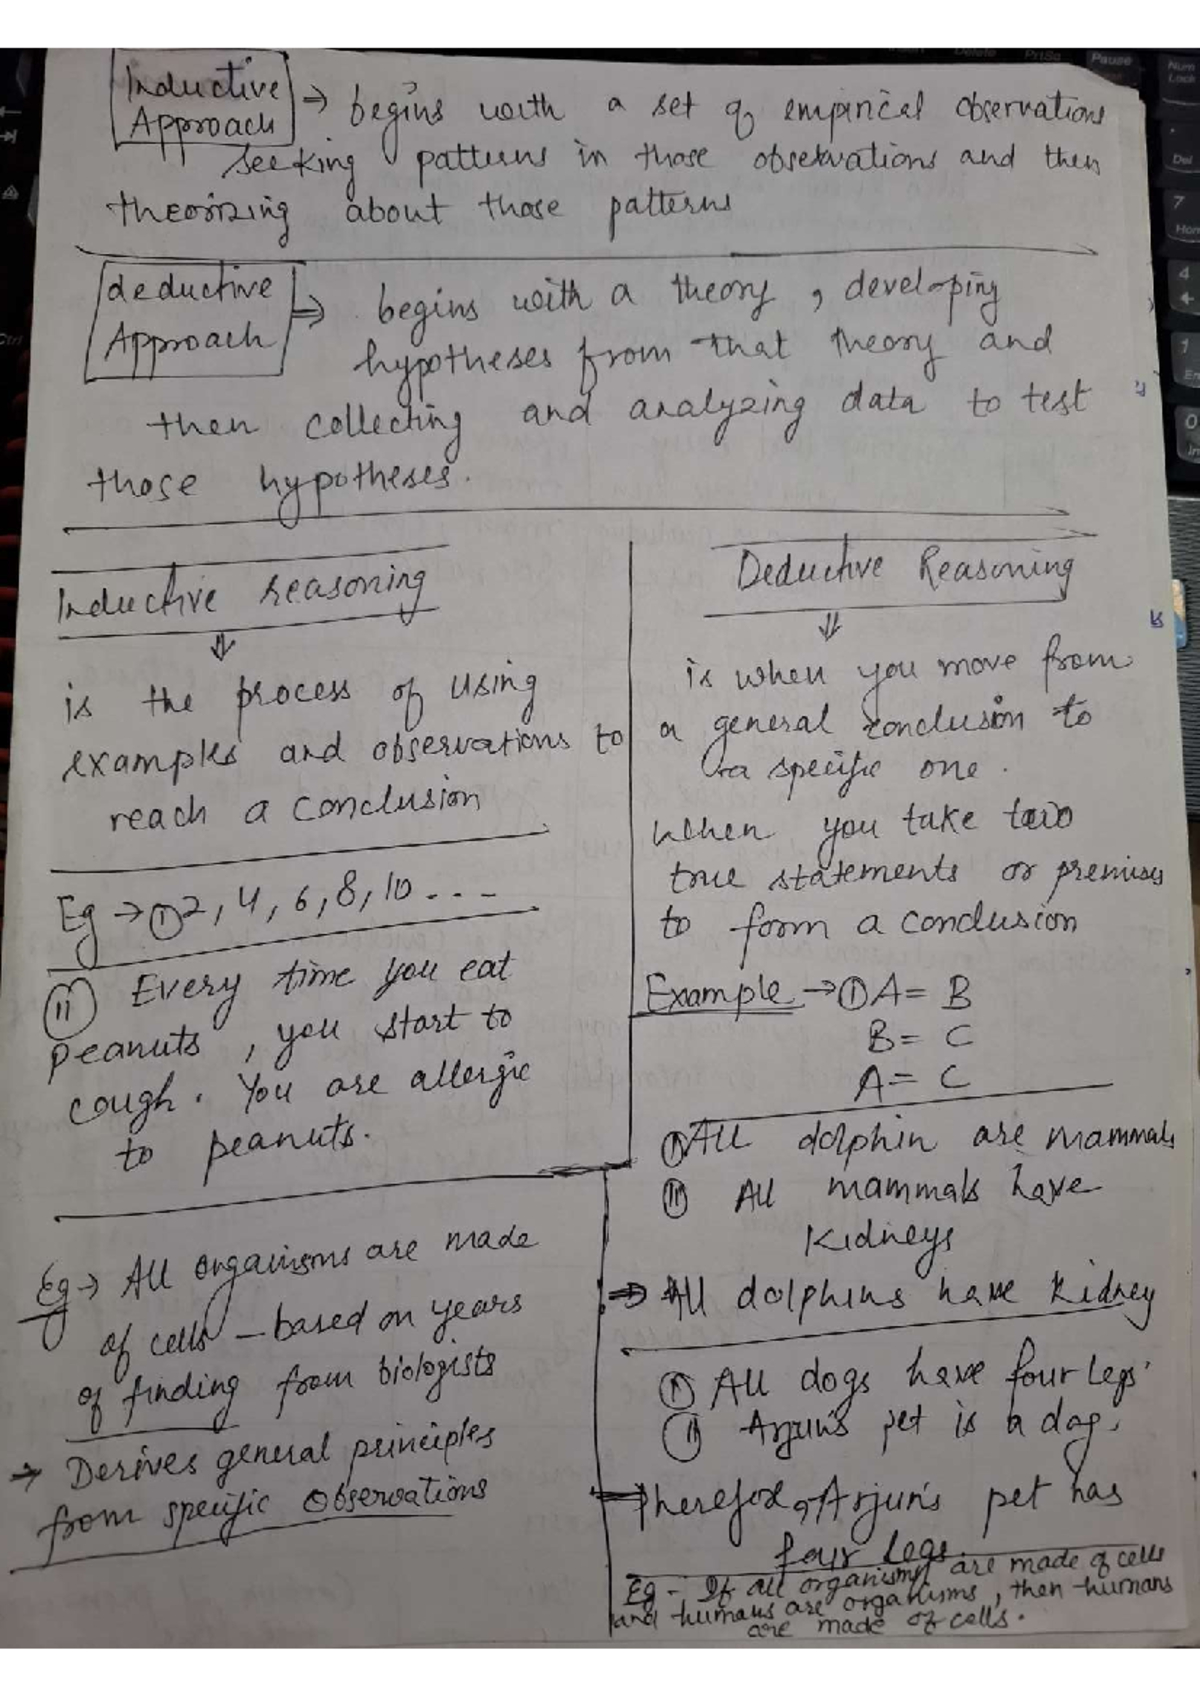 Inductive
Approach ⇒ begins with a set of empirical observations
seeking patterns in those observations and then
theorizing about those patterns
deductive
Approach ⇒ begins with a theory, developing
hypotheses from that theory and
then collecting and analyzing data to test
those hypotheses.
Inductive reasoning
⇓
is the process of using
examples and observations to
reach a conclusion
Eg → ① 2, 4, 6, 8, 10 ....
(ii) Every time you eat
peanuts, you start to
cough. You are allergic
to peanuts.
Eg → All organisms are made
of cells – based on years
of finding from biologists
→ Derives general principles
from specific observations
Deductive Reasoning
⇓
is when you move from
a general conclusion to
a specific one.
When you take two
true statements or premises
to form a conclusion
Example → ① A = B
B = C
A = C
(i) All dolphin are mammals
(ii) All mammals have
kidneys
⇒ All dolphins have kidney
(i) All dogs have four legs
(ii) Arjun's pet is a dog.
Therefore, Arjun's pet has
four legs.
Eg - If all organisms are made of cells
and humans are organisms, then humans
are made of cells.
Pause
Num
Lock
Del
7
Hom
4
1
0